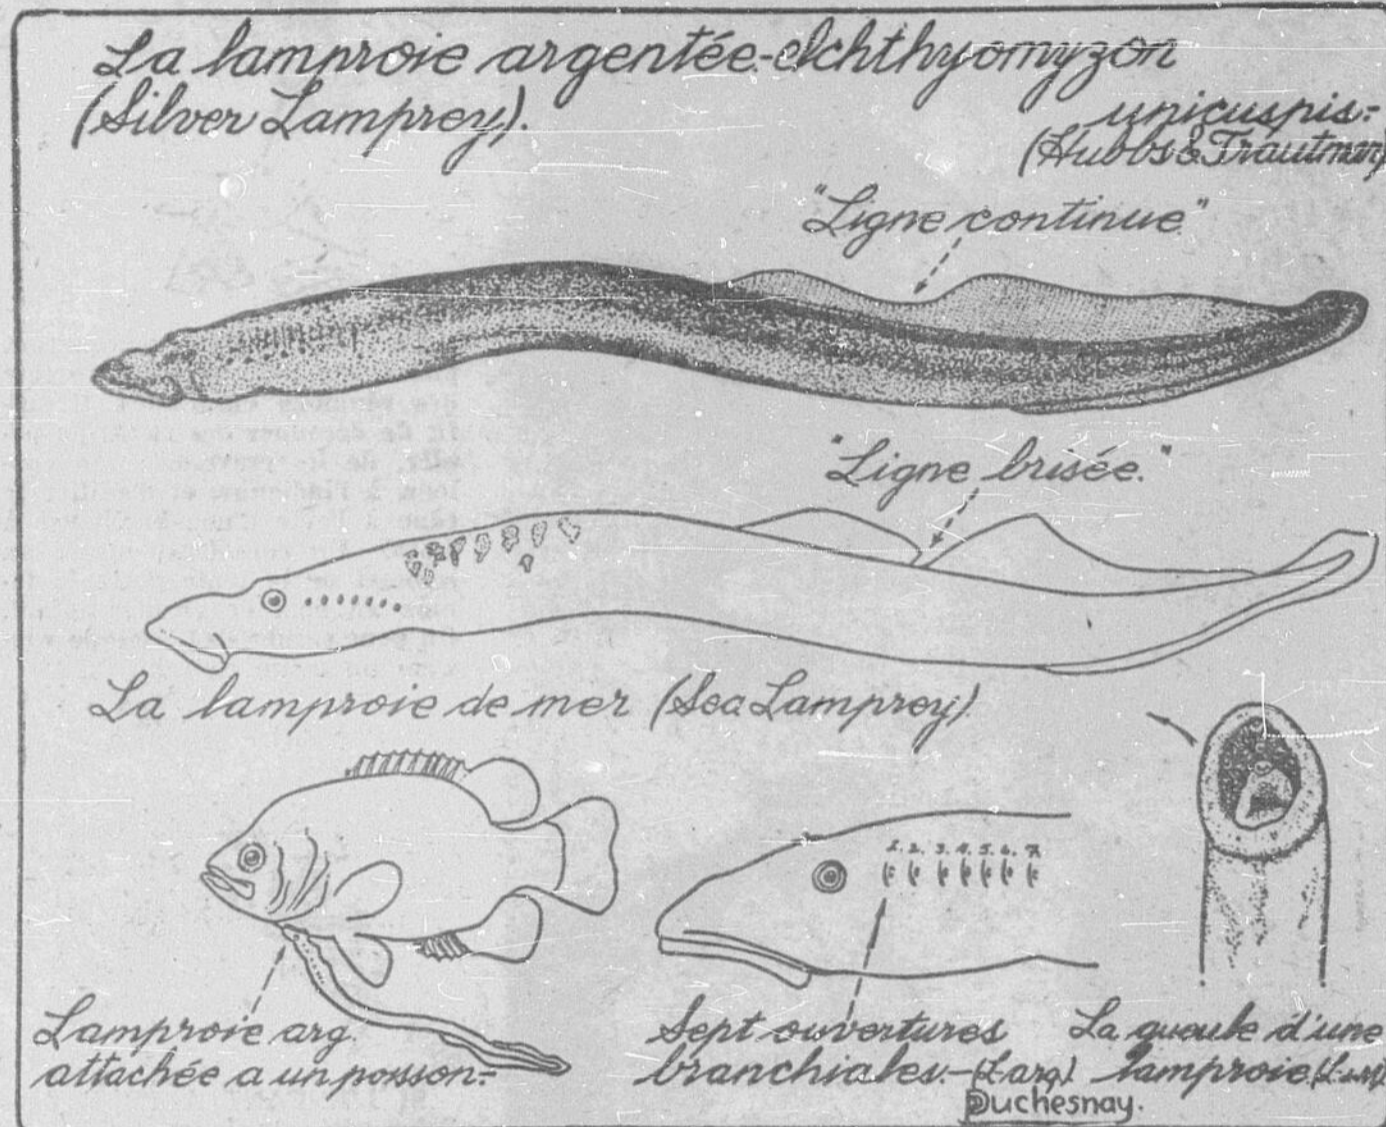 La lamproie argentée-Ichthyomyzon
(Silver Lamprey).
unicuspis-
(Hubbs & Trautman)
"Ligne continue"
"Ligne brisée."
La lamproie de mer (Sea Lamprey)
1. 2. 3. 4. 5. 6. 7.
Lamproie arg.
attachée a un poisson-
Sept ouvertures
branchiales-(L. arg.)
La gueule d'une
lamproie
Duchesnay.